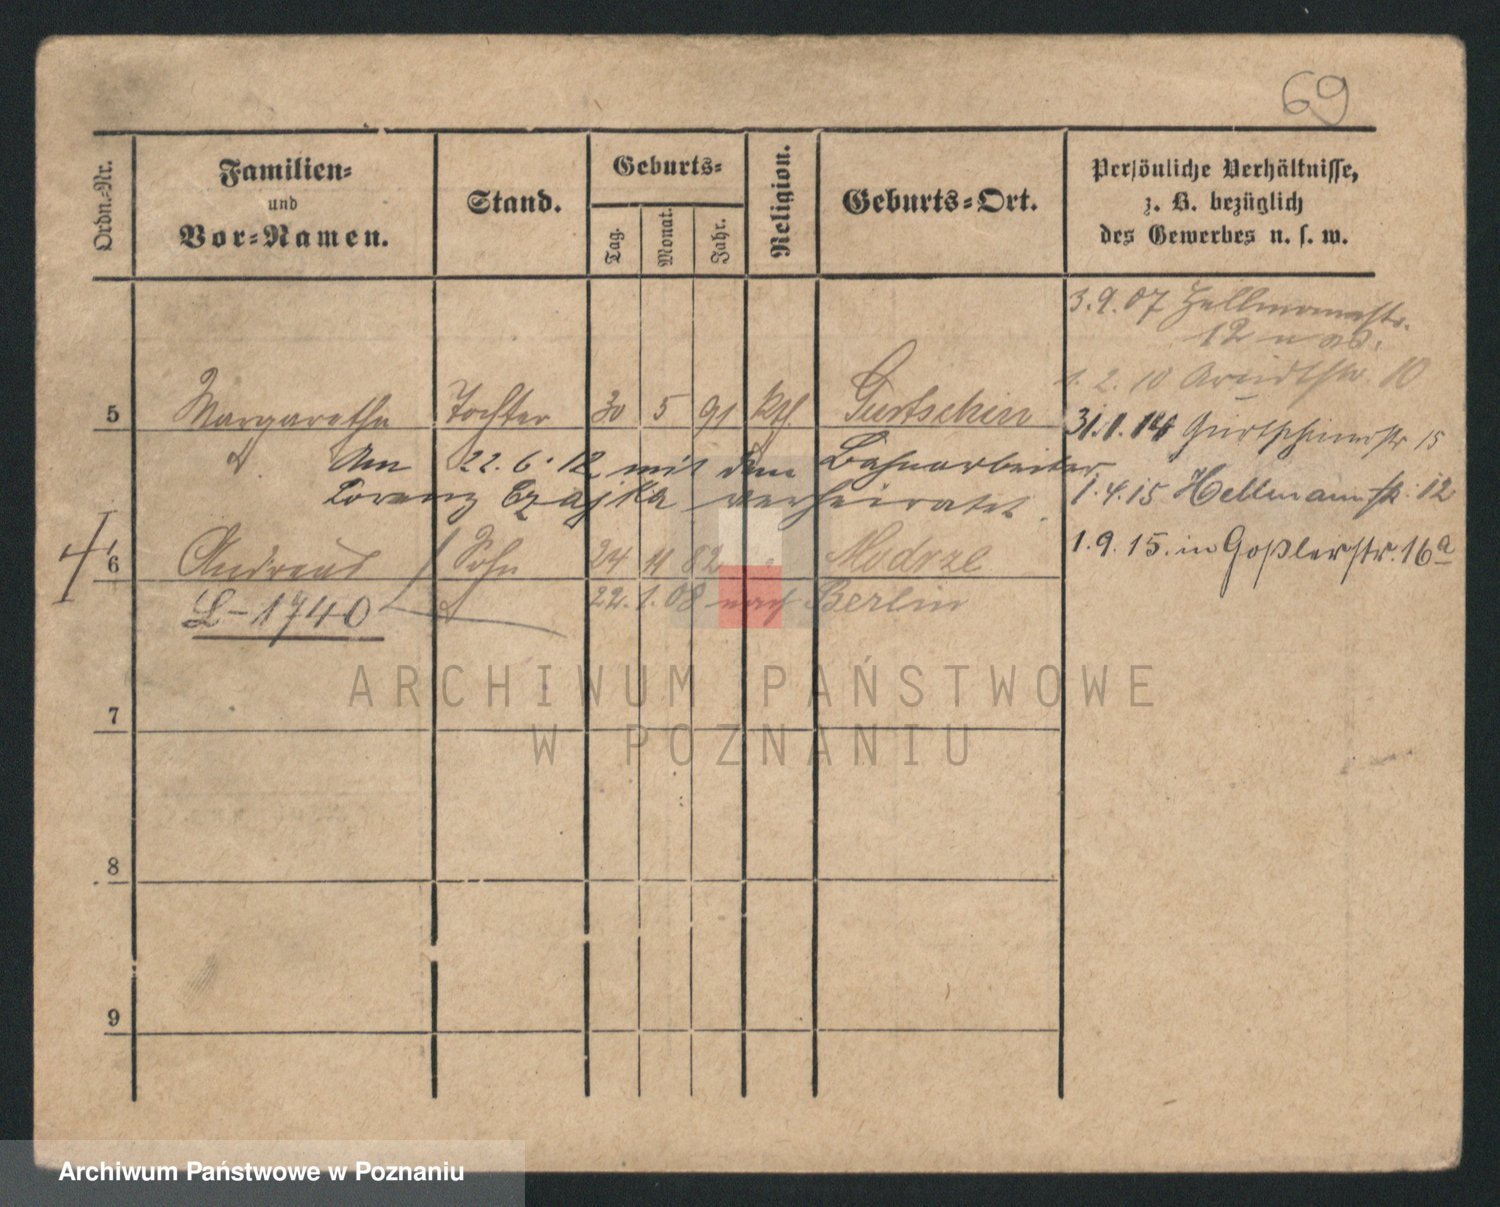 69
Ordn.-Nr.
Familien-
und
Vor-Namen.
Stand.
Geburts-
Tag.
Monat.
Jahr.
Religion.
Geburts-Ort.
Persönliche Verhältnisse,
z. B. bezüglich
des Gewerbes u. s. w.
3.9.07 Hellmannstr.
12
1.2.10 Arndtstr. 10
5 Margaretha Tochter 30 5 91 kth. Gurtschin
31.1.14 Gurtschinerstr 15
Am 22.6.12 mit dem Bahnarbeiter
Lorenz Czajka verheiratet.
1.4.15 Hellmannstr. 12
1.9.15. in Goßlerstr. 16a
6 Andreas Sohn 24 11 82 " Modrze
L-1740
22.1.08 nach Berlin
ARCHIWUM PAŃSTWOWE
W POZNANIU
7
8
9
Archiwum Państwowe w Poznaniu